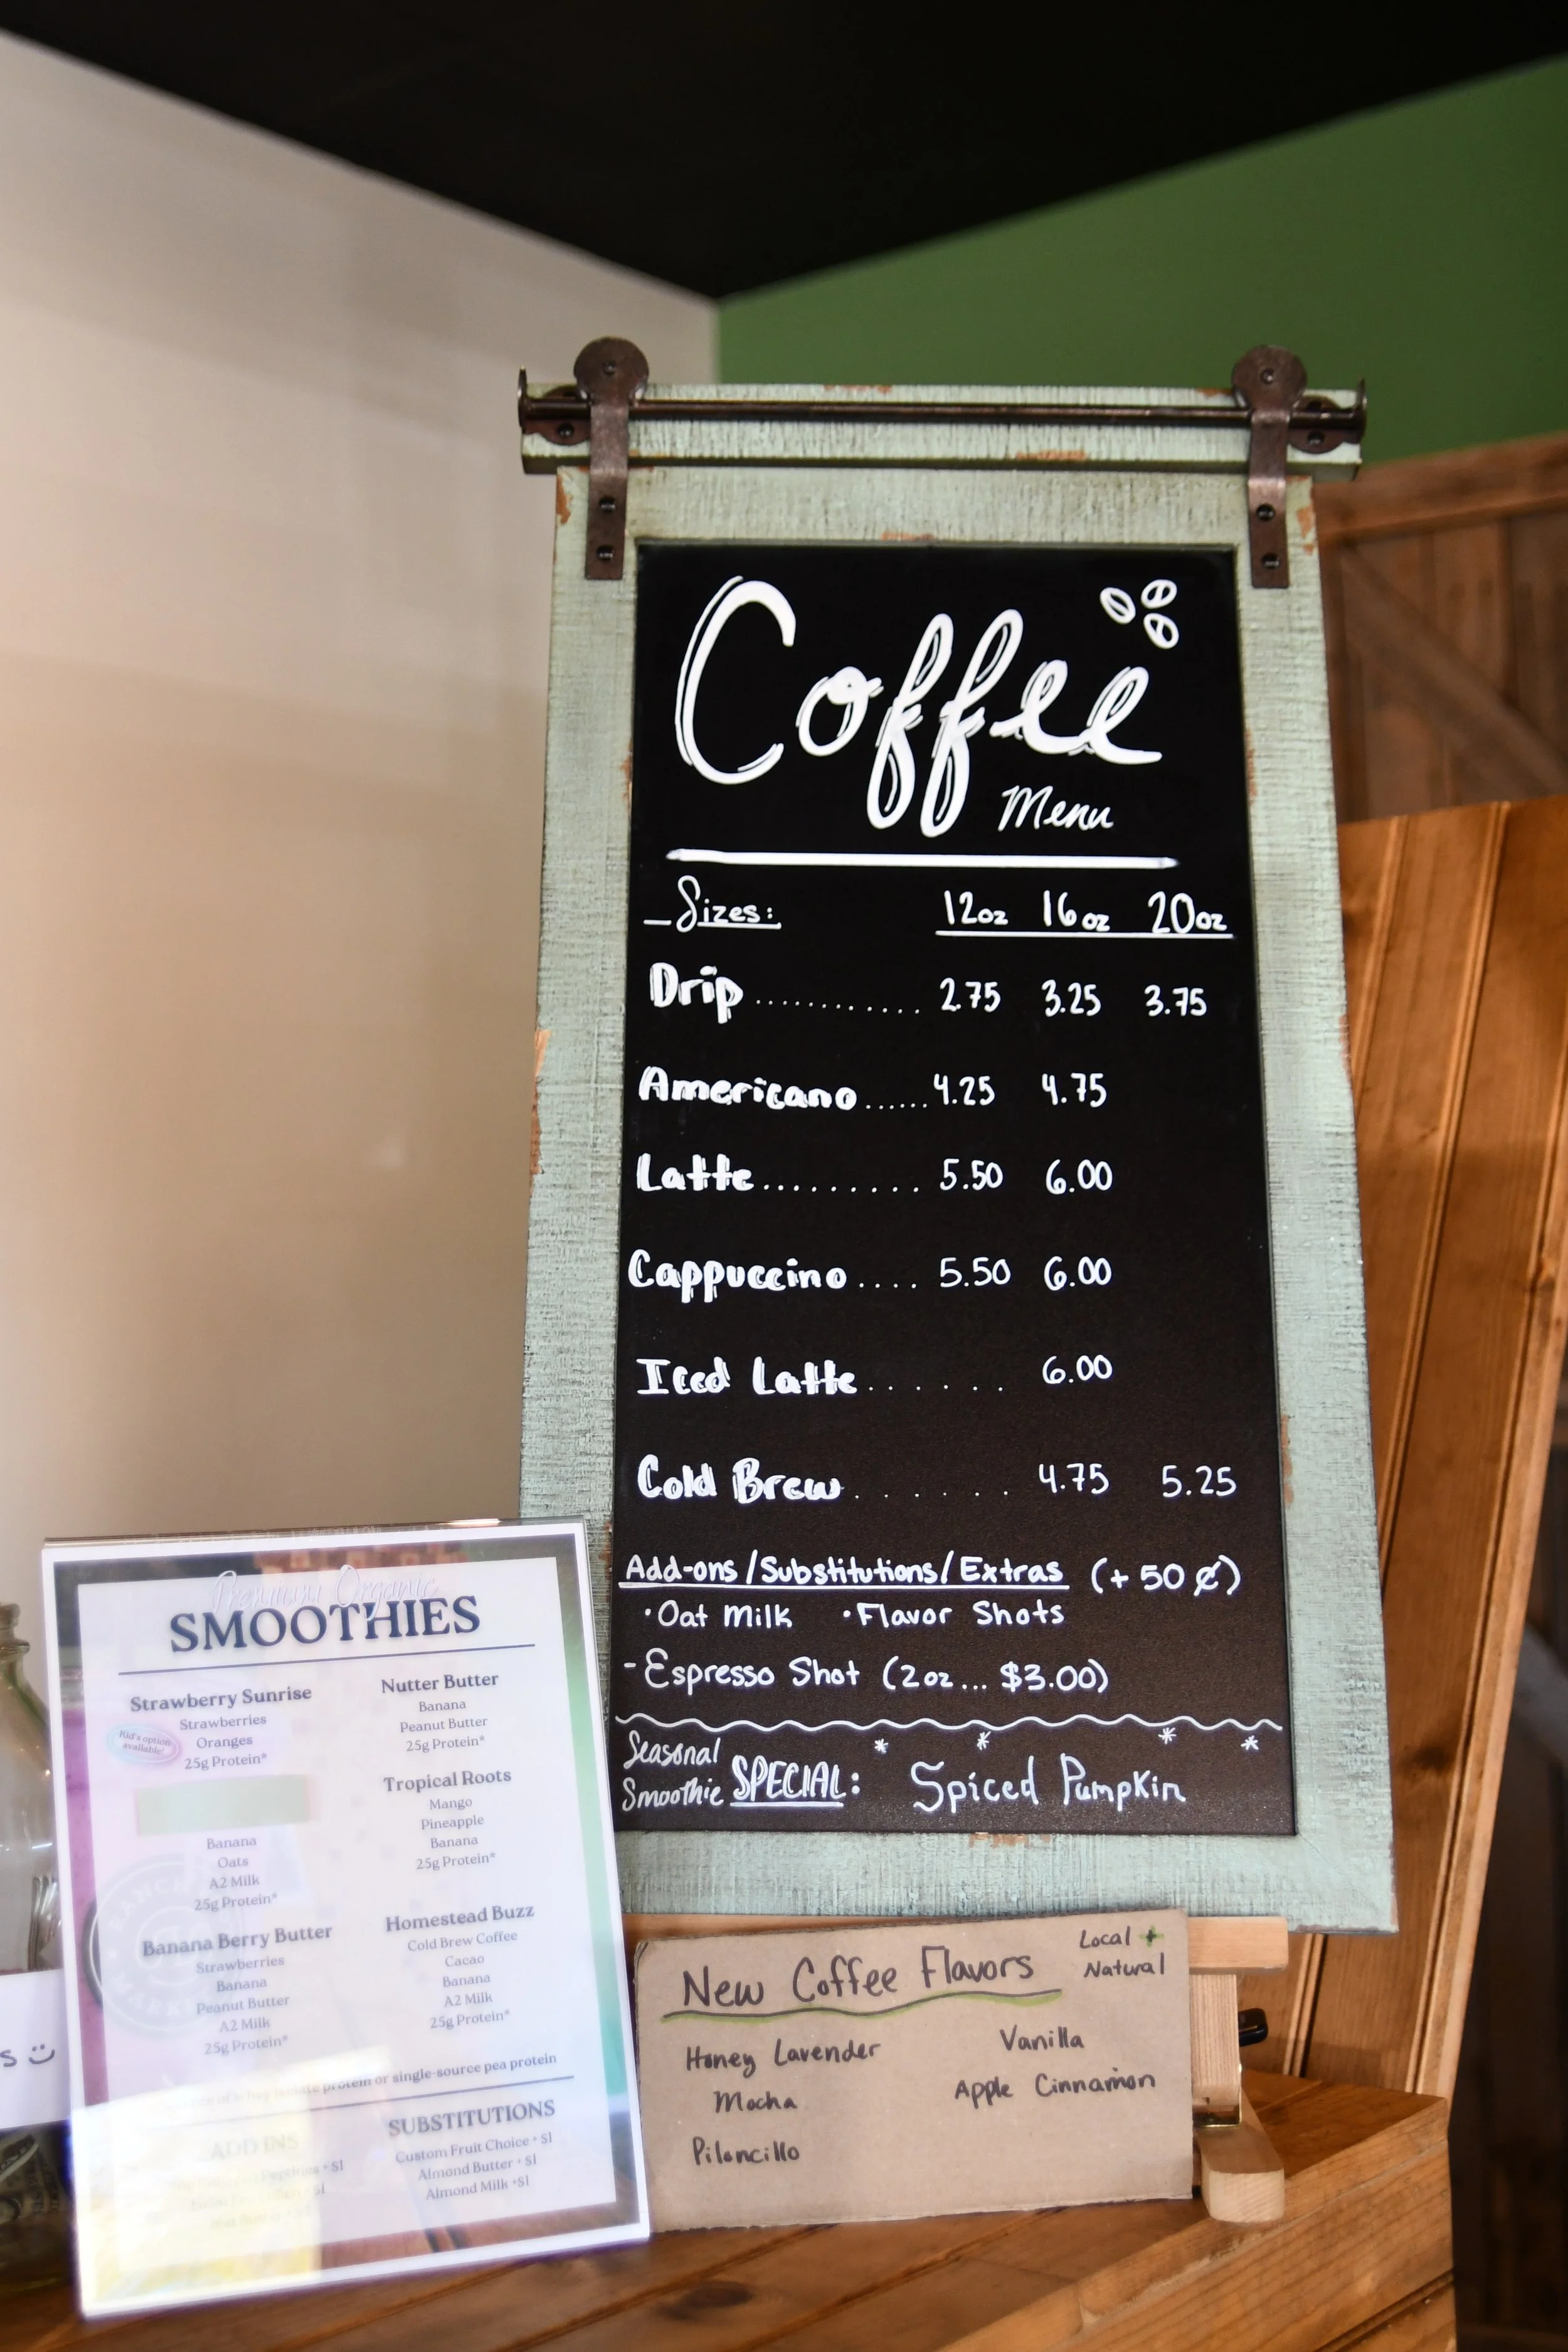 Coffee
Menu
Sizes: 12oz 16oz 20oz
Drip ............ 2.75 3.25 3.75
Americano ...... 4.25 4.75
Latte ......... 5.50 6.00
Cappuccino .... 5.50 6.00
Iced Latte ....... 6.00
Cold Brew ....... 4.75 5.25
Add-ons/Substitutions/Extras (+50¢)
·Oat Milk ·Flavor Shots
-Espresso Shot (2oz... $3.00)
Seasonal
Smoothie SPECIAL: Spiced Pumpkin
Premium Organic
SMOOTHIES
Strawberry Sunrise
Kid's option
available!
Strawberries
Oranges
25g Protein*
Banana
Oats
A2 Milk
25g Protein*
Banana Berry Butter
Strawberries
Banana
Peanut Butter
A2 Milk
25g Protein*
Nutter Butter
Banana
Peanut Butter
25g Protein*
Tropical Roots
Mango
Pineapple
Banana
25g Protein*
Homestead Buzz
Cold Brew Coffee
Cacao
Banana
A2 Milk
25g Protein*
isolate protein or single-source pea protein
ADD INS
+ $1
SUBSTITUTIONS
Custom Fruit Choice + $1
Almond Butter + $1
Almond Milk +$1
New Coffee Flavors
Local +
Natural
Honey Lavender
Mocha
Piloncillo
Vanilla
Apple Cinnamon